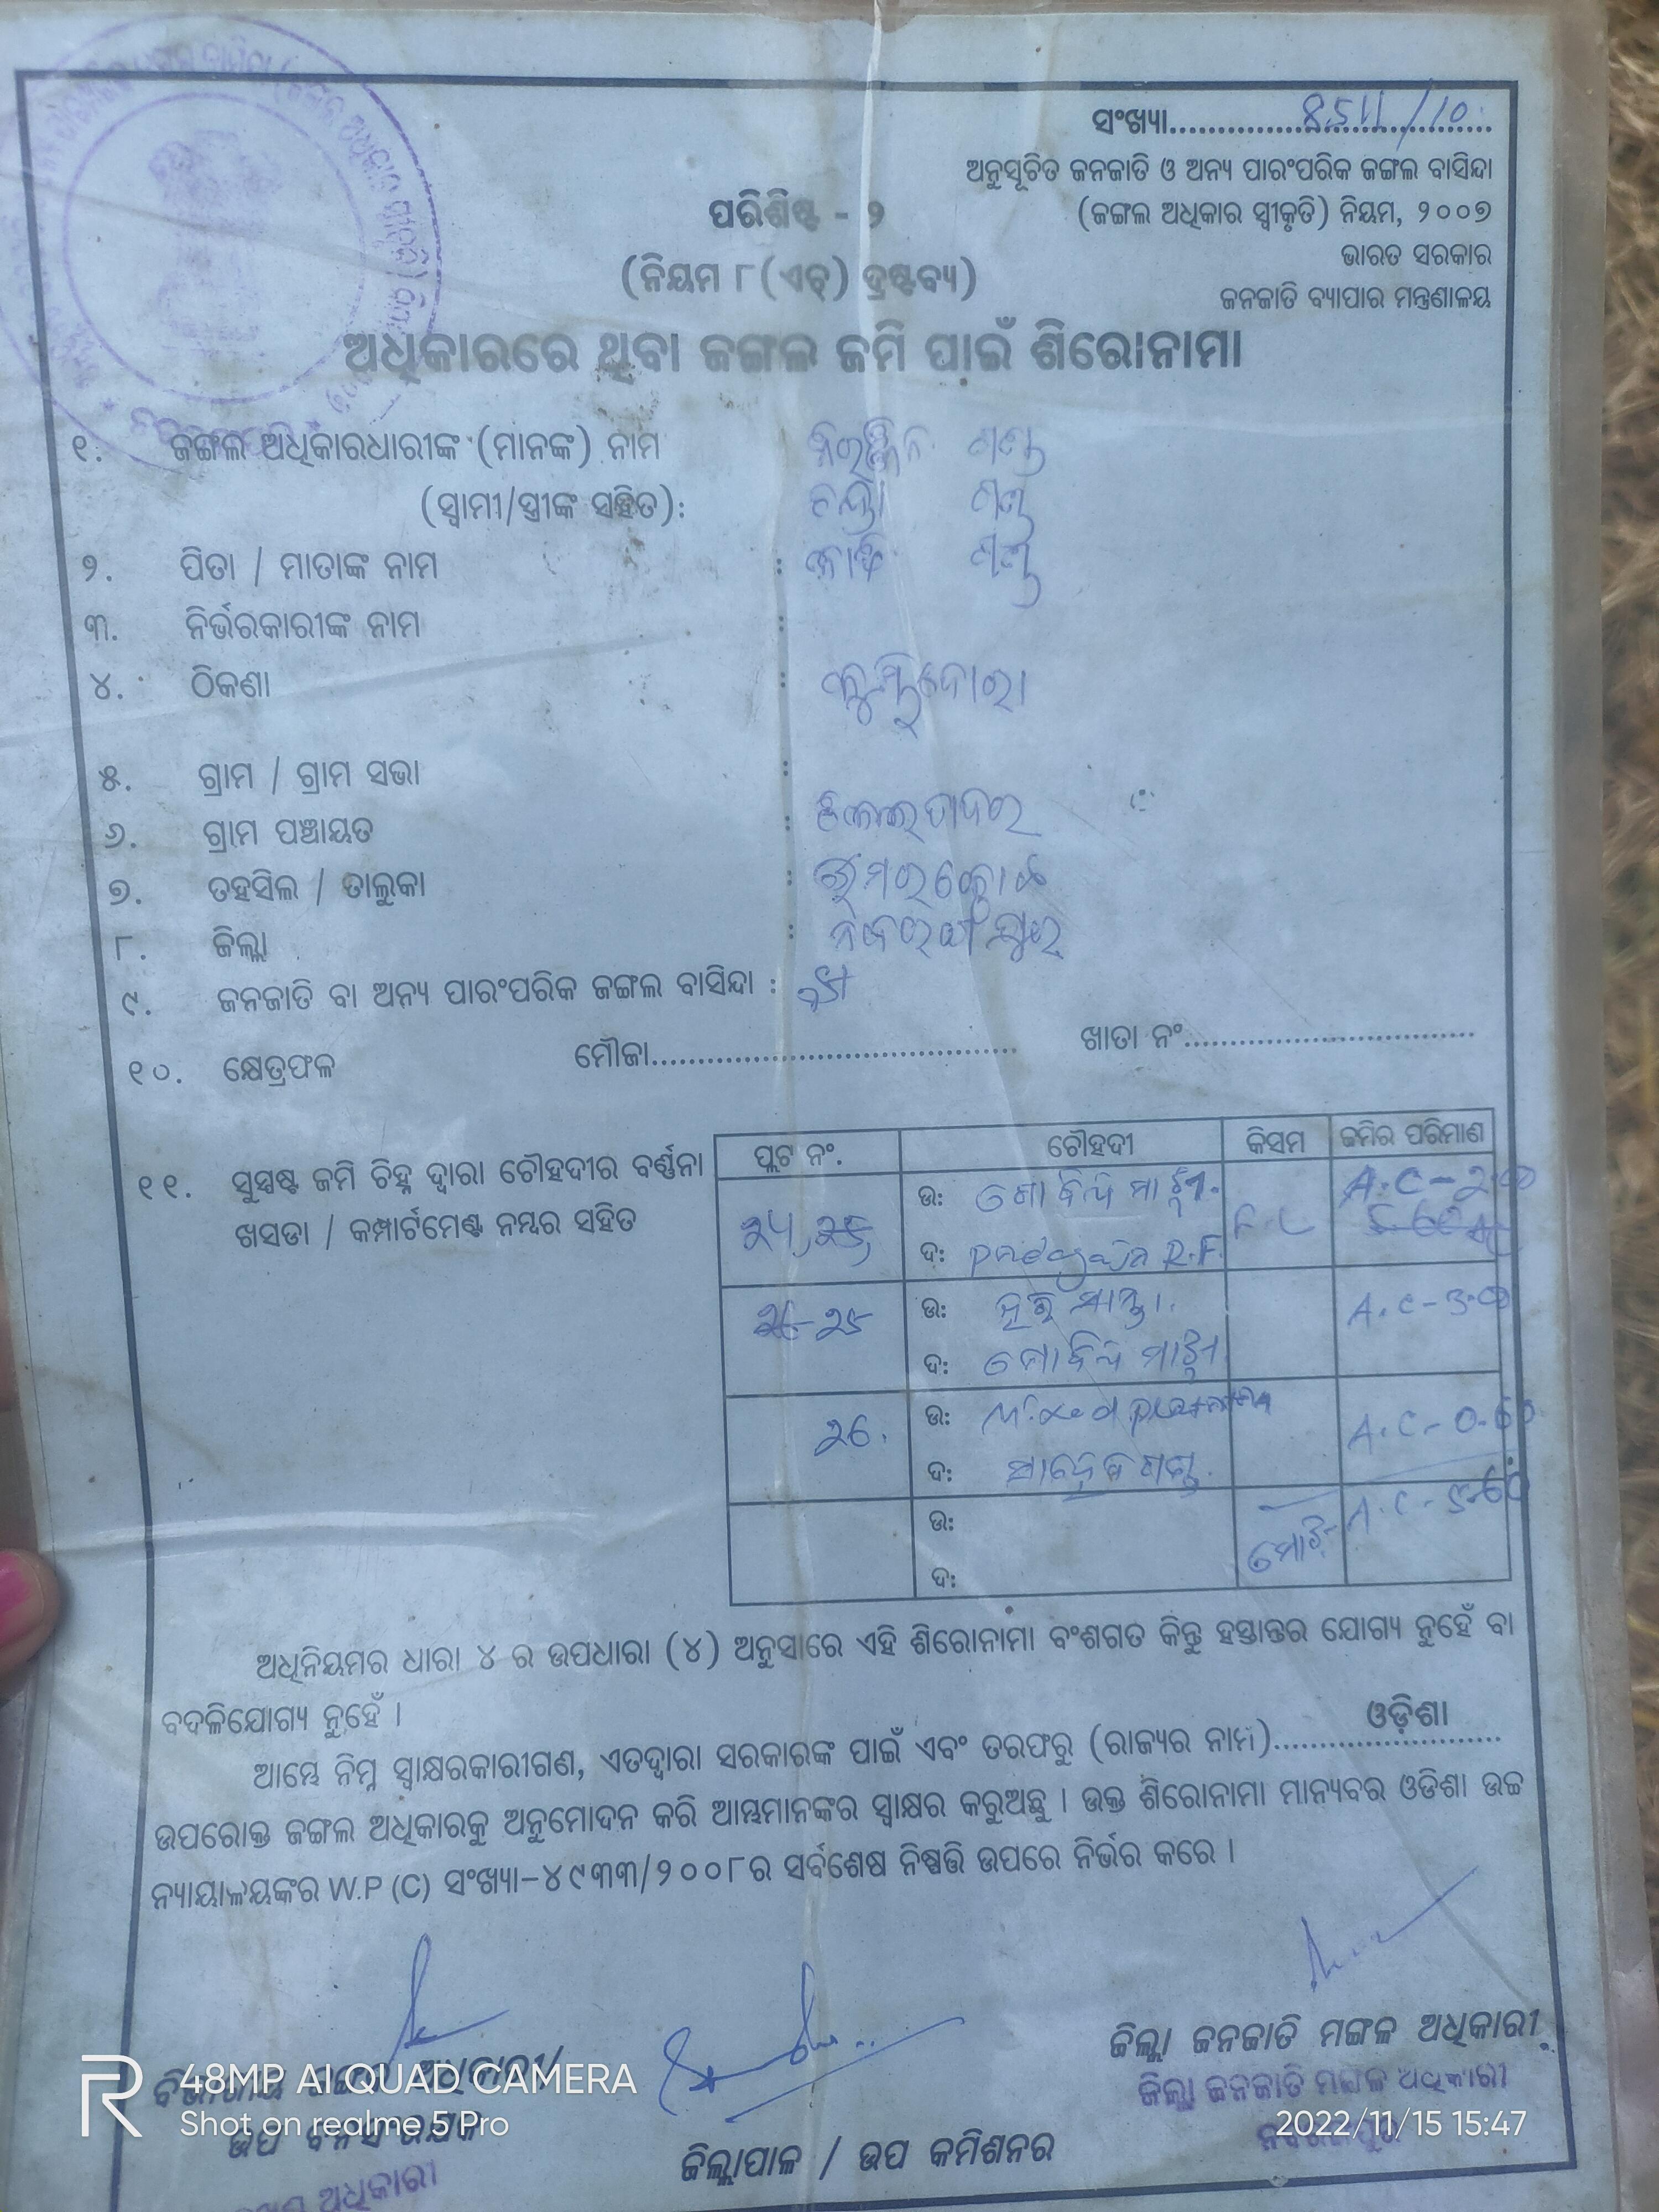 ସଂଖ୍ୟା.................8511/10
ଅନୁସୂଚିତ ଜନଜାତି ଓ ଅନ୍ୟ ପାରଂପରିକ ଜଙ୍ଗଲ ବାସିନ୍ଦା
(ଜଙ୍ଗଲ ଅଧିକାର ସ୍ୱୀକୃତି) ନିୟମ, ୨୦୦୭
ଭାରତ ସରକାର
ଜନଜାତି ବ୍ୟାପାର ମନ୍ତ୍ରଣାଳୟ
ପରିଶିଷ୍ଟ - ୨
(ନିୟମ ୮(ଏଚ୍) ଦ୍ରଷ୍ଟବ୍ୟ)
ଅଧିକାରରେ ଥିବା ଜଙ୍ଗଲ ଜମି ପାଇଁ ଶିରୋନାମା
୧. ଜଙ୍ଗଲ ଅଧିକାରଧାରୀଙ୍କ (ମାନଙ୍କ) ନାମ ନିରଞ୍ଜନ ଗଣ୍ଡ
(ସ୍ୱାମୀ/ସ୍ତ୍ରୀଙ୍କ ସହିତ): ଗଣ୍ଡ
୨. ପିତା / ମାତାଙ୍କ ନାମ : ଗଣ୍ଡ
୩. ନିର୍ଭରକାରୀଙ୍କ ନାମ :
୪. ଠିକଣା :
୫. ଗ୍ରାମ / ଗ୍ରାମ ସଭା :
୬. ଗ୍ରାମ ପଞ୍ଚାୟତ :
୭. ତହସିଲ / ତାଲୁକା : ଝୁମରଖୋଳ
୮. ଜିଲ୍ଲା : ନବରଙ୍ଗପୁର
୯. ଜନଜାତି ବା ଅନ୍ୟ ପାରଂପରିକ ଜଙ୍ଗଲ ବାସିନ୍ଦା :
୧୦. କ୍ଷେତ୍ରଫଳ ମୌଜା................................ ଖାତା ନଂ................................
୧୧. ସୁସ୍ପଷ୍ଟ ଜମି ଚିହ୍ନ ଦ୍ୱାରା ଚୌହଦୀର ବର୍ଣ୍ଣନା
ଖସଡା / କମ୍ପାର୍ଟମେଣ୍ଟ ନମ୍ବର ସହିତ
ପ୍ଲଟ ନଂ. ଚୌହଦୀ କିସମ ଜମିର ପରିମାଣ
ଉ: ଗୋବିନ୍ଦ ମାଝୀ. A.C - 2.00
ଦ: R.F.
ଉ: A.C - 3.00
ଦ: ଗୋବିନ୍ଦ ମାଝୀ
26. ଉ: A.C - 0.60
ଦ: ଗଣ୍ଡ.
ଉ: ମୋଟ A.C - 5.60
ଦ:
ଅଧିନିୟମର ଧାରା ୪ ର ଉପଧାରା (୪) ଅନୁସାରେ ଏହି ଶିରୋନାମା ବଂଶଗତ କିନ୍ତୁ ହସ୍ତାନ୍ତର ଯୋଗ୍ୟ ନୁହେଁ ବା
ବଦଳିଯୋଗ୍ୟ ନୁହେଁ ।
ଆମ୍ଭେ ନିମ୍ନ ସ୍ୱାକ୍ଷରକାରୀଗଣ, ଏତଦ୍ୱାରା ସରକାରଙ୍କ ପାଇଁ ଏବଂ ତରଫରୁ (ରାଜ୍ୟର ନାମ)........ଓଡ଼ିଶା........
ଉପରୋକ୍ତ ଜଙ୍ଗଲ ଅଧିକାରକୁ ଅନୁମୋଦନ କରି ଆମ୍ଭମାନଙ୍କର ସ୍ୱାକ୍ଷର କରୁଅଛୁ । ଉକ୍ତ ଶିରୋନାମା ମାନ୍ୟବର ଓଡିଶା ଉଚ୍ଚ
ନ୍ୟାୟାଳୟଙ୍କର W.P (C) ସଂଖ୍ୟା-୪୯୩୩/୨୦୦୮ର ସର୍ବଶେଷ ନିଷ୍ପତ୍ତି ଉପରେ ନିର୍ଭର କରେ ।
ଜିଲ୍ଲା ଜନଜାତି ମଙ୍ଗଳ ଅଧିକାରୀ
ଜିଲ୍ଲା ଜନଜାତି ମଙ୍ଗଳ ଅଧିକାରୀ
ନବରଙ୍ଗପୁର
ଜିଲ୍ଲାପାଳ / ଉପ କମିଶନର
ଅଧିକାରୀ
48MP AI QUAD CAMERA
Shot on realme 5 Pro
2022/11/15 15:47